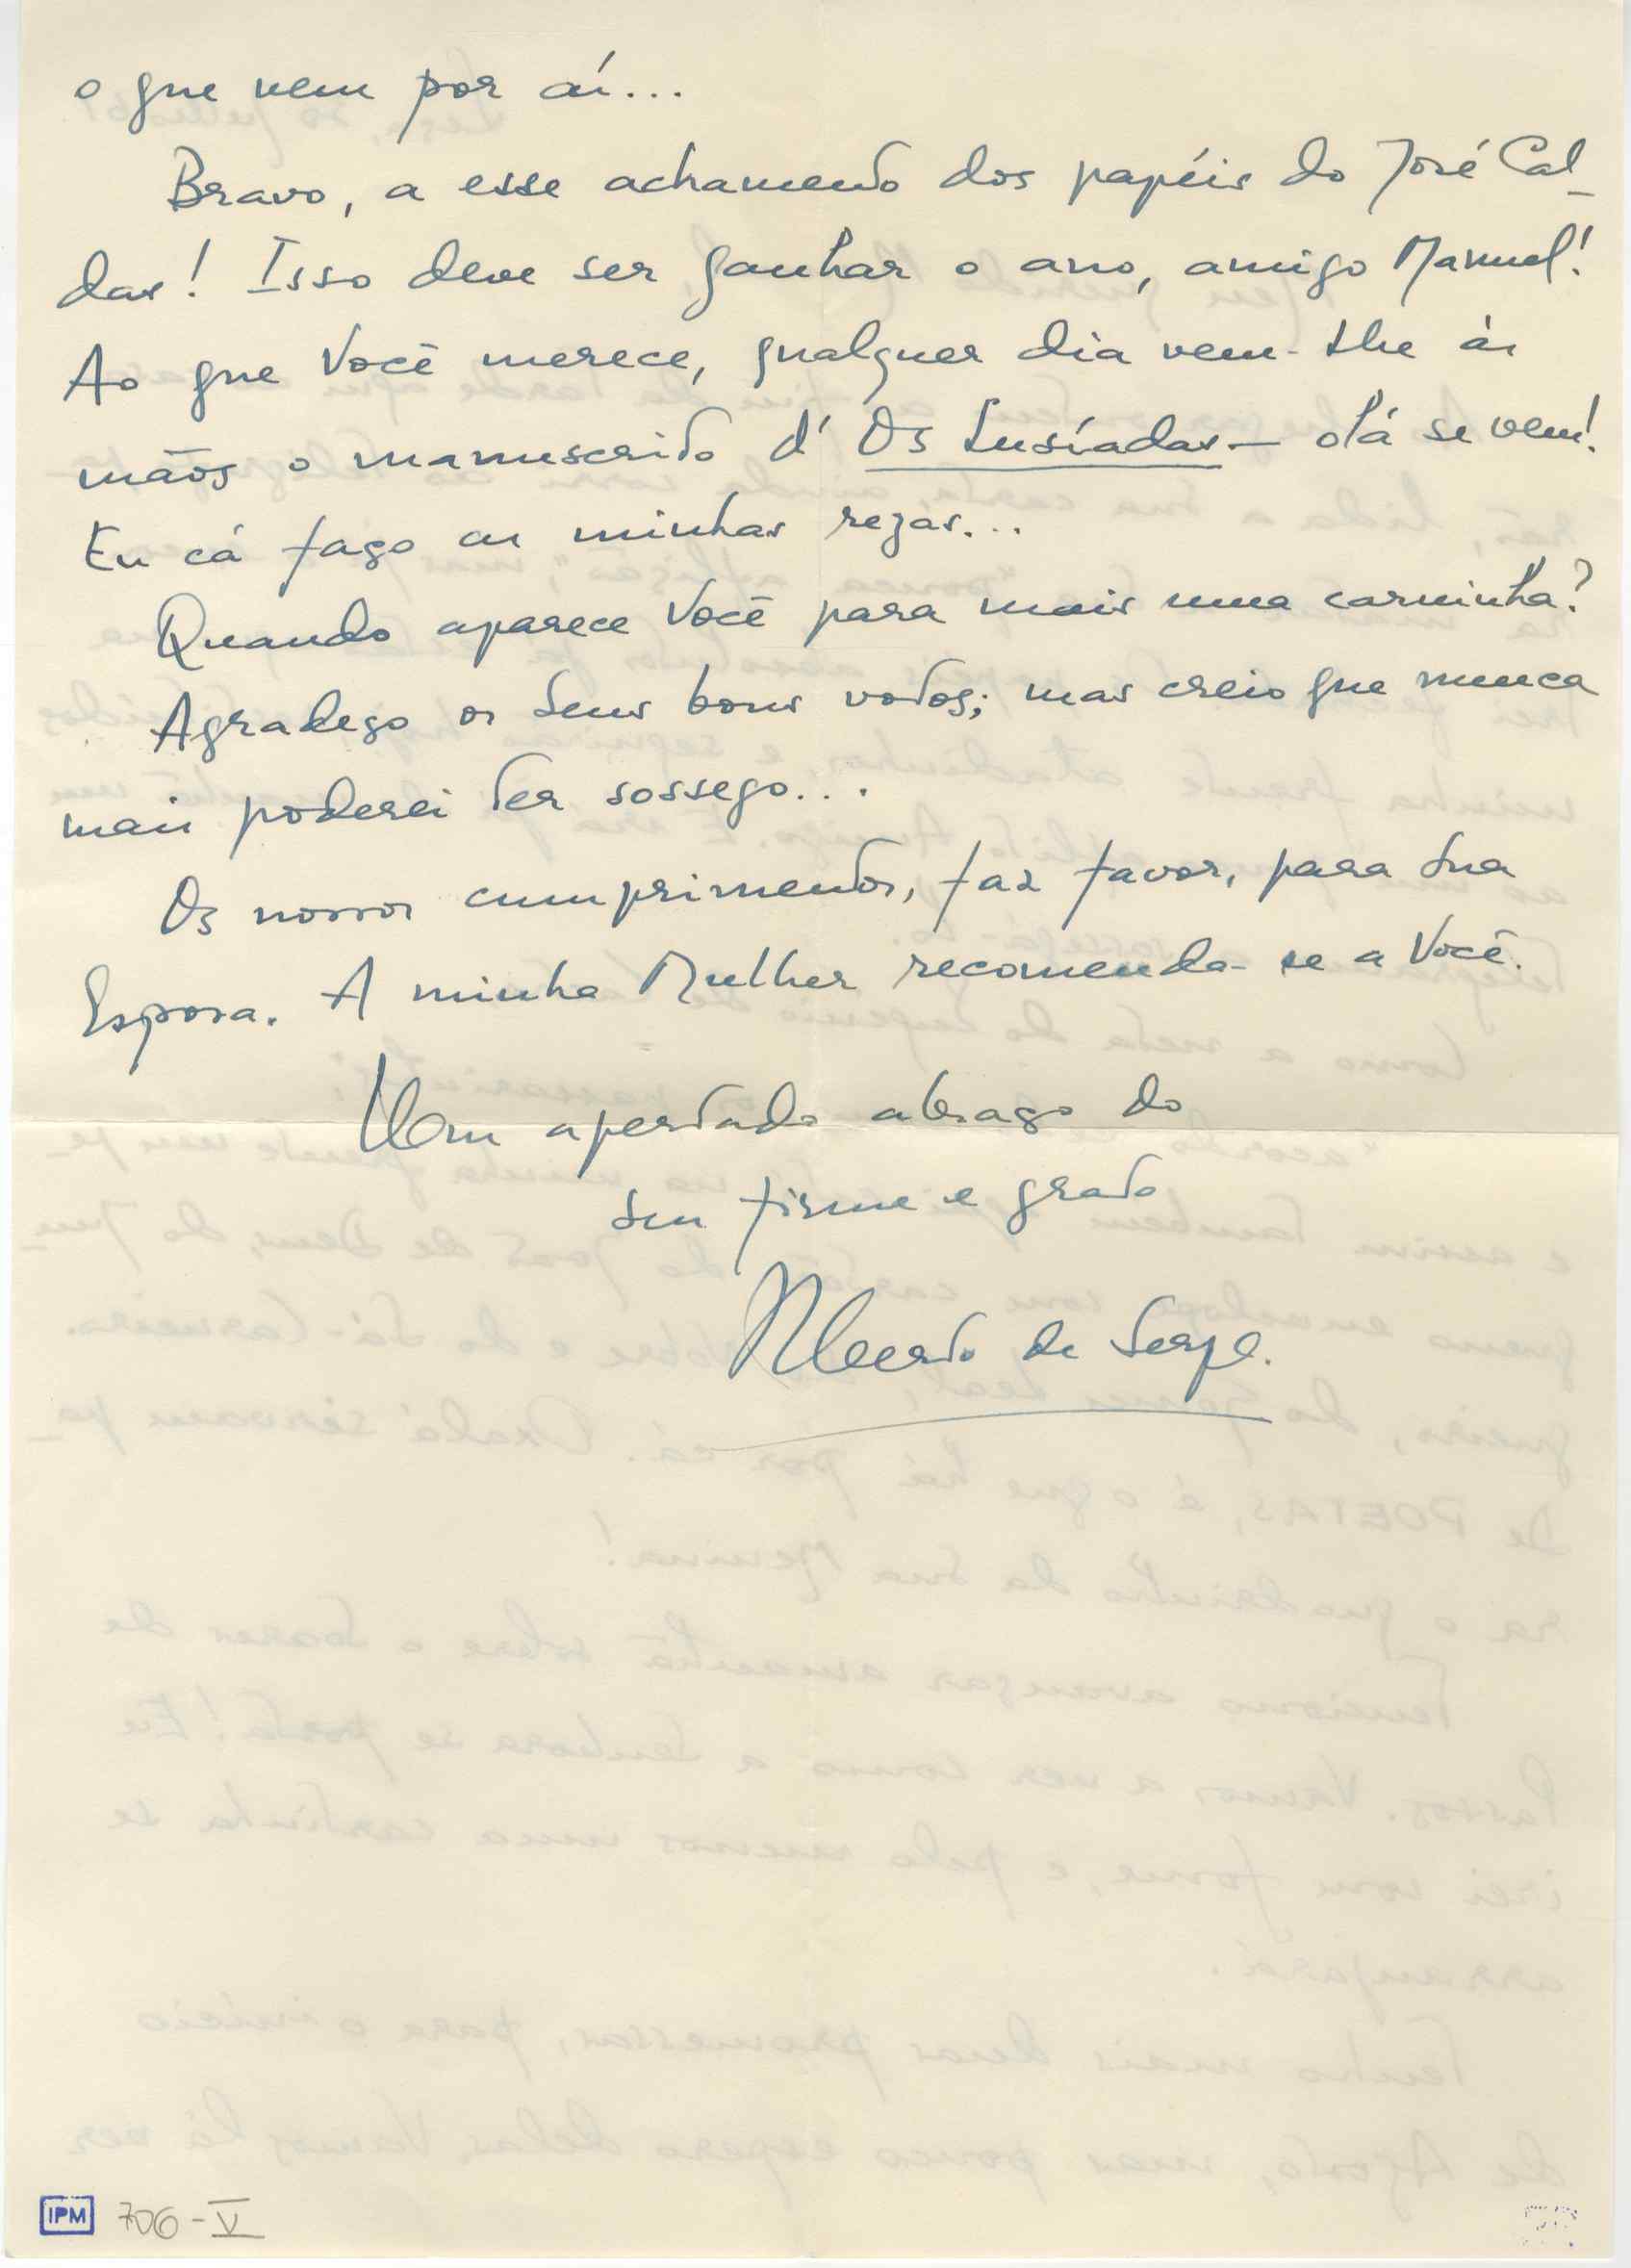 o que vem por aí...
Bravo, a esse achamento dos papéis do José Cal-
das! Isso deve ser ganhar o ano, amigo Manuel!
Ao que Você merece, qualquer dia vem-lhe às
mãos o manuscrito d'Os Lusíadas — olá se vem!
Eu cá faço as minhas rezas...
Quando aparece Você para mais uma carninha?
Agradeço os seus bons votos; mas creio que nunca
mais poderei ter sossego...
Os nossos cumprimentos, faz favor, para sua
Esposa. A minha Mulher recomenda-se a Você.
Um apertado abraço do
seu firme e grato
Alberto de Serpa.
IPM 706-V